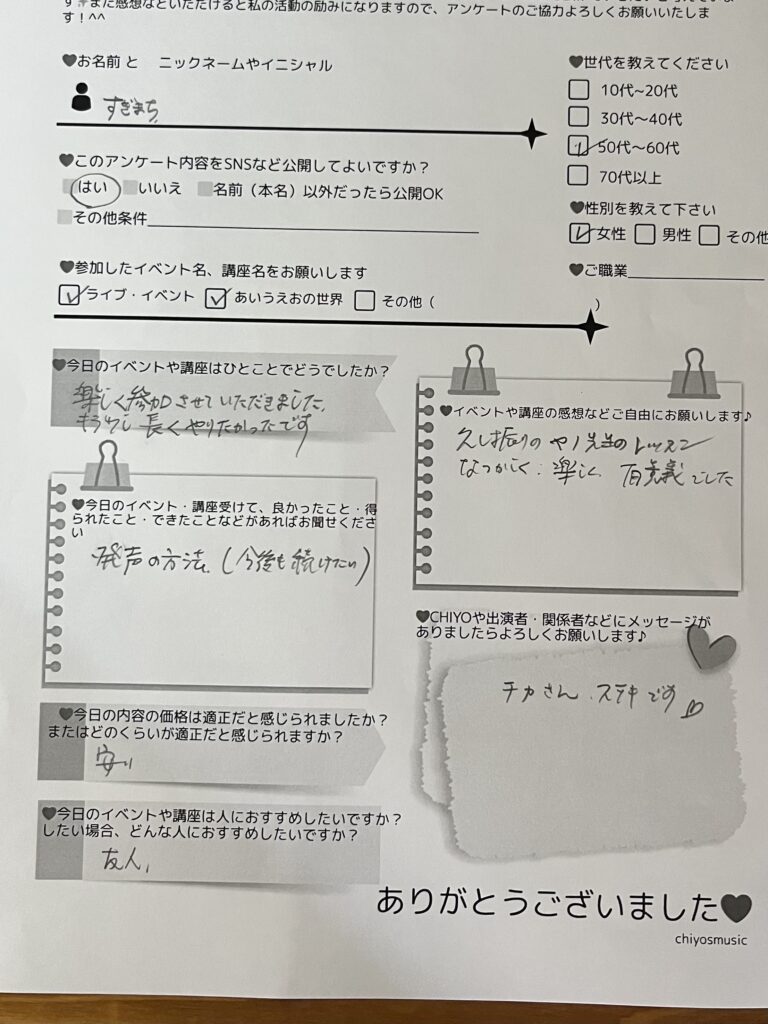 す また感想などいただけると私の活動の励みになりますので、アンケートのご協力よろしくお願いいたしま
す！^^
♥お名前 と ニックネームやイニシャル
すぎまち
♥このアンケート内容をSNSなど公開してよいですか？
はい いいえ 名前（本名）以外だったら公開OK
その他条件
♥参加したイベント名、講座名をお願いします
ライブ・イベント あいうえおの世界 その他（ ）
♥世代を教えてください
10代~20代
30代～40代
50代～60代
70代以上
♥性別を教えて下さい
女性 男性 その他
♥ご職業
♥今日のイベントや講座はひとことでどうでしたか？
楽しく参加させていただきました。
もう少し長くやりたかったです
♥今日のイベント・講座受けて、良かったこと・得
られたこと・できたことなどがあればお聞せくださ
い
発声の方法。（今後も続けたい）
♥今日の内容の価格は適正だと感じられましたか？
またはどのくらいが適正だと感じられますか？
安い
♥今日のイベントや講座は人におすすめしたいですか？
したい場合、どんな人におすすめしたいですか？
友人、
♥イベントや講座の感想などご自由にお願いします♪
久し振りの 先生のレッスン
なつかしく、楽しく、有意義でした
♥CHIYOや出演者・関係者などにメッセージが
ありましたらよろしくお願いします♪
チカさん、ステキです
ありがとうございました♥
chiyosmusic